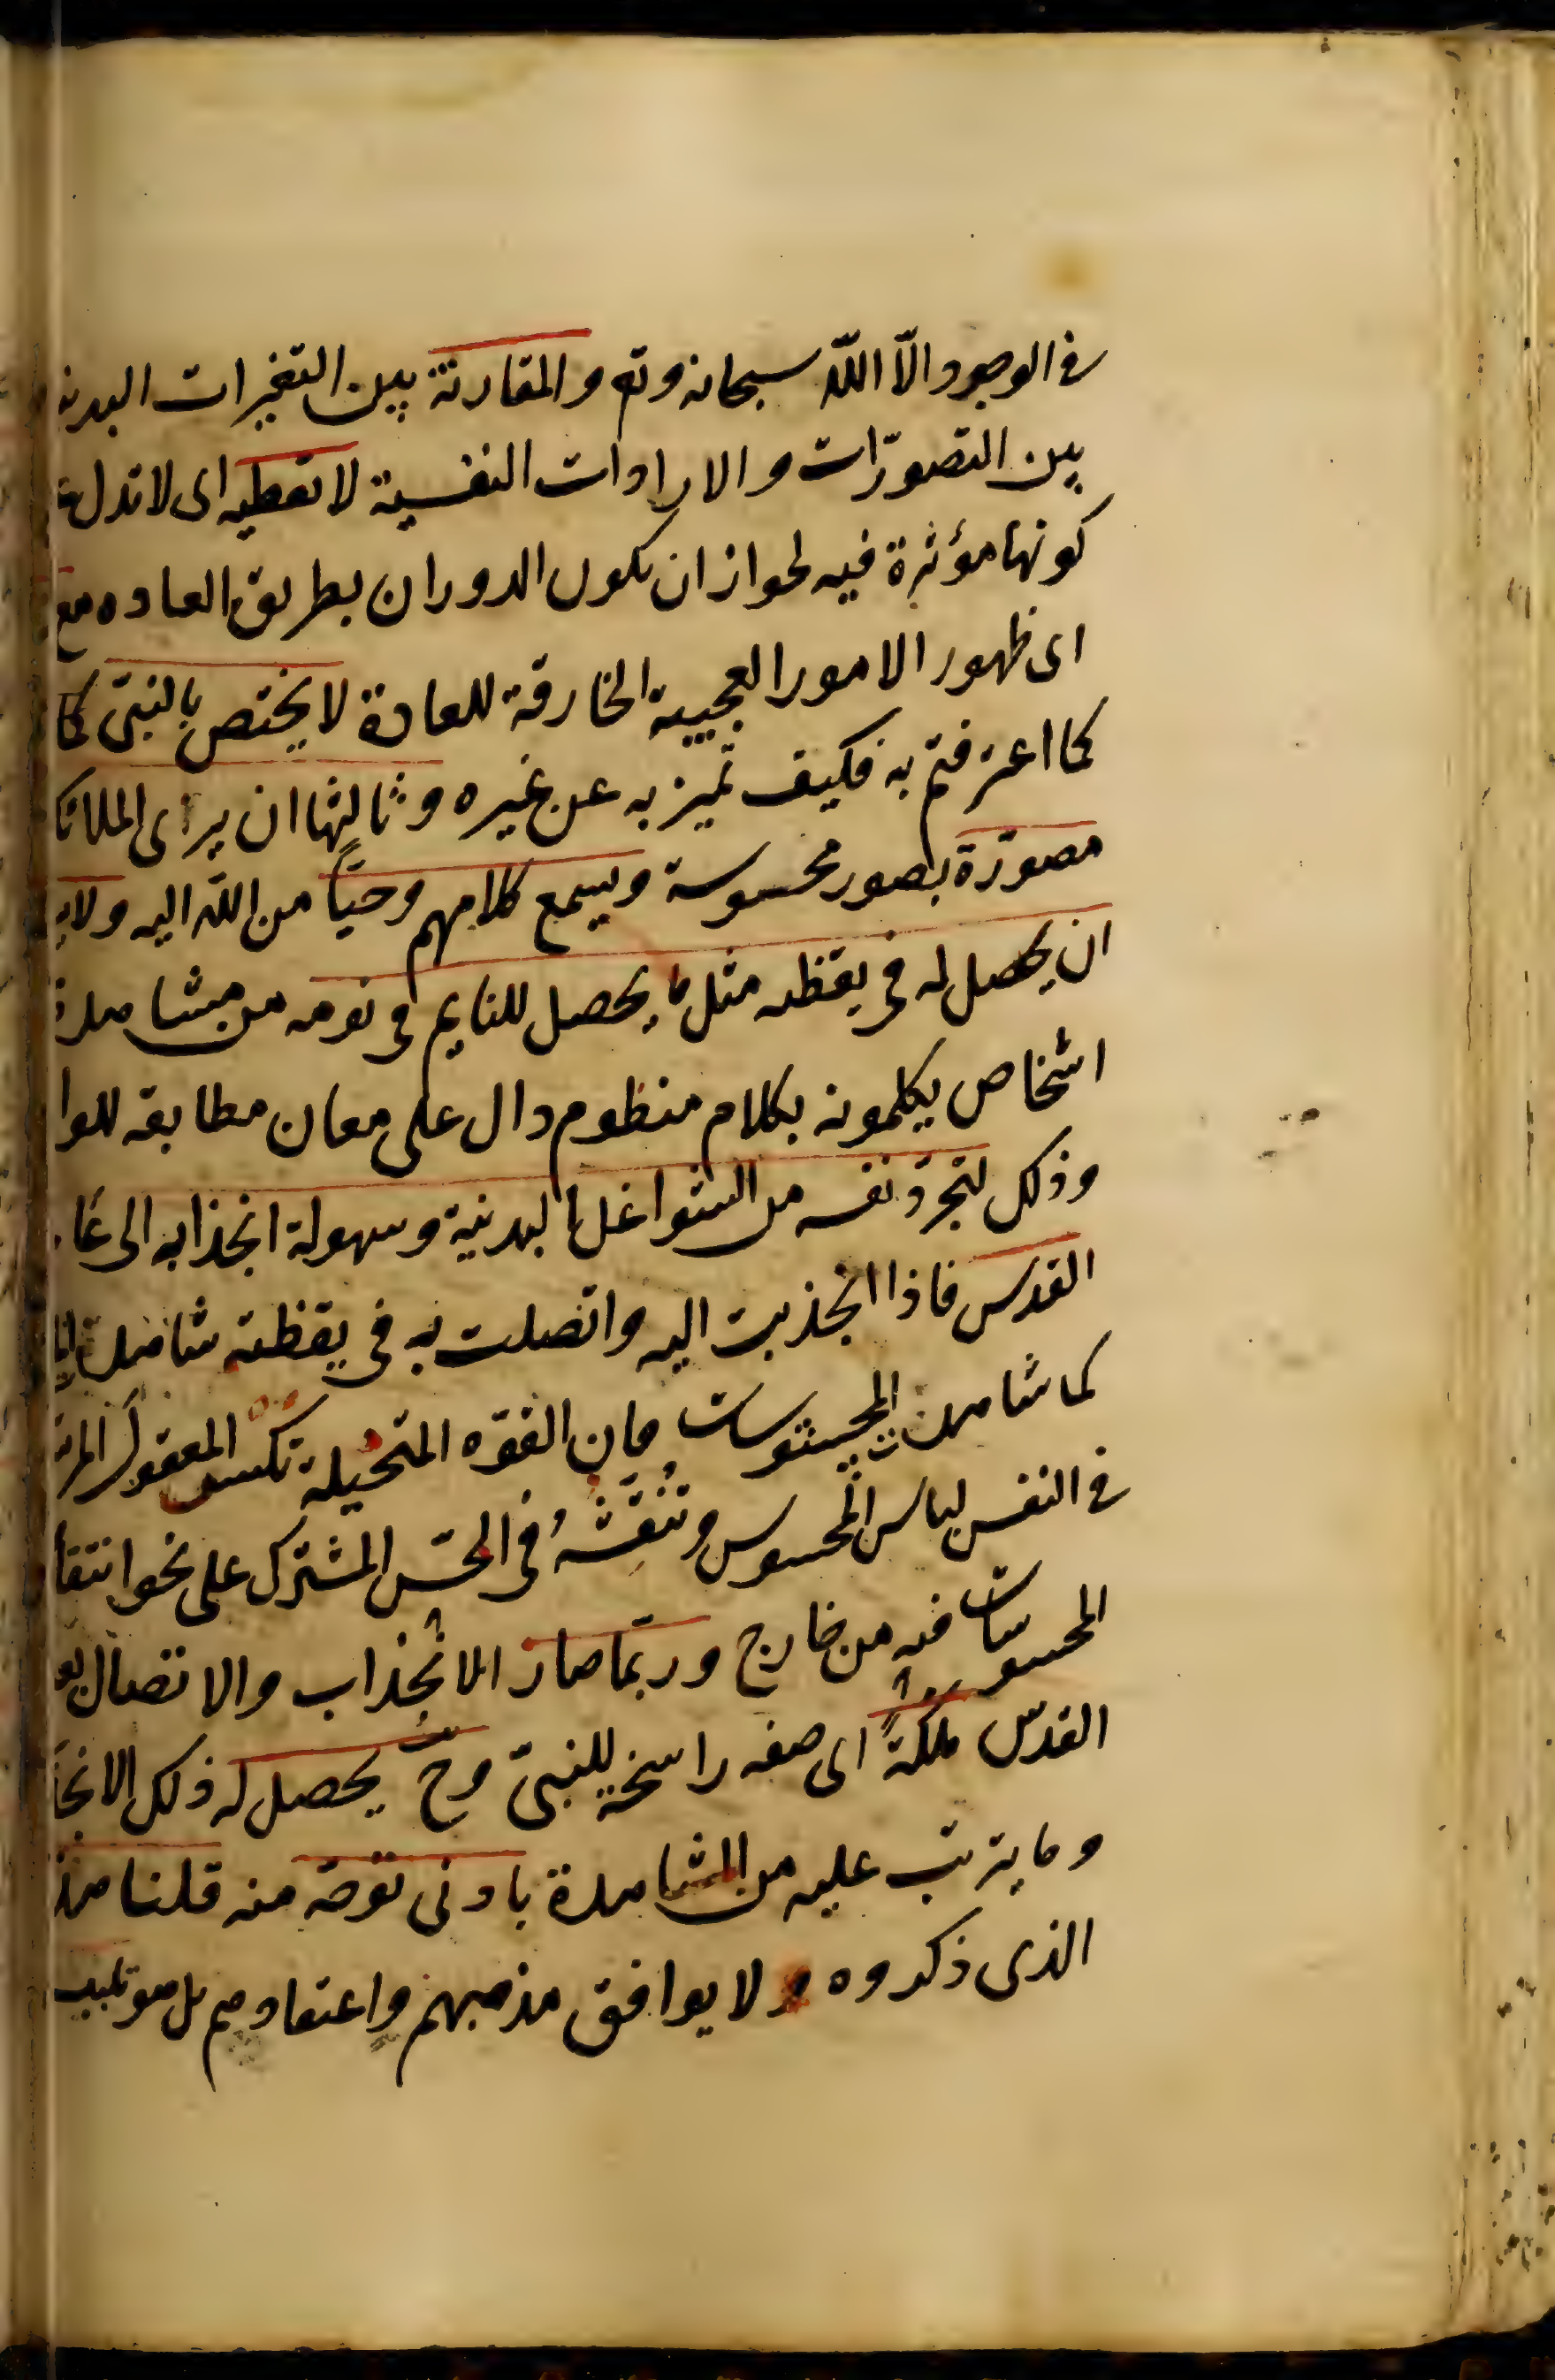 في الوجود الّا اللّه سبحانه وتع والمقارنة بين التغيرات البدنية
بين التصوّرات والارادات النفسية لا تعطيه اى لا تدل على
كونها مؤثرة فيه لجواز ان يكون الدوران بطريق العاده مع
اى ظهور الامور العجيبة الخارقة للعادة لا يختص بالنبىّ كما
كما اعترفتم به فكيف تميز به عن غيره وثالثها ان يرى الملائكة
مصوّرة بصور محسوسة ويسمع كلامهم وحيًا من اللّه اليه ولا
ان يحصل له في يقظته مثل ما يحصل للنايم في نومه من مشاهدة
اشخاص يكلمونه بكلام منظوم دال على معان مطابقه للوا
وذلك لتجرّد نفسه من الشواغل البدنية وسهولة انجذابه الى عا
القدس فاذا انجذبت اليه واتصلت به في يقظته شاهدت
كما شاهدت المحسوسات فان القوّه المتخيلة تكسى المعقول المر
في النفس لباس المحسوس وتنقشهُ في الحسّ المشترك على نحو انتقا
المحسوسات فيه من خارج وربّما صار الانجذاب والاتصال
القدس ملكةً اى صفه راسخة للنبىّ وح يحصل له ذلك الانجذ
وما يترتب عليه من المشاهدة بادنى توجّه منه قلنا هذا
الذى ذكروه ولا يوافق مذهبهم واعتقادهم بل هو تلبيس